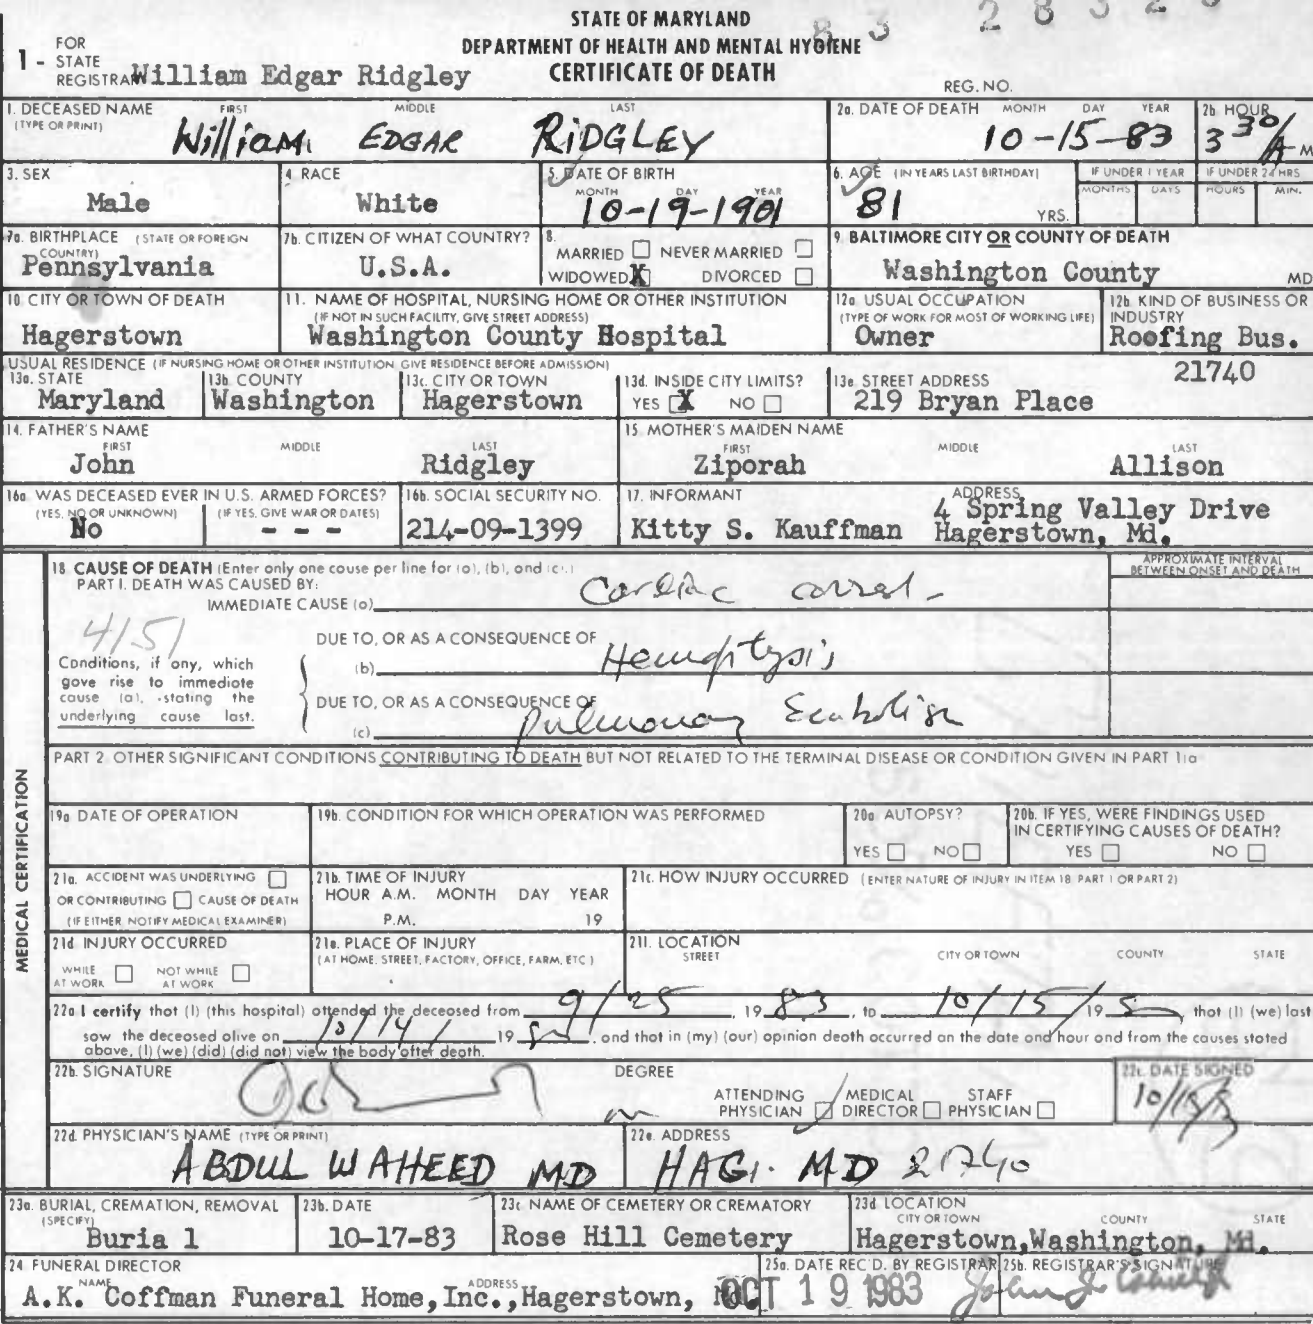 STATE OF MARYLAND
DEPARTMENT OF HEALTH AND MENTAL HYGIENE
CERTIFICATE OF DEATH
1 - FOR STATE REGISTRAR William Edgar Ridgley
REG. NO.
1. DECEASED NAME (TYPE OR PRINT) FIRST MIDDLE LAST
William EDGAR RIDGLEY
2a. DATE OF DEATH MONTH DAY YEAR
10-15-83
2b. HOUR
3 30/A M
3. SEX
Male
4. RACE
White
5. DATE OF BIRTH
MONTH DAY YEAR
10-19-1901
6. AGE (IN YEARS LAST BIRTHDAY)
81 YRS.
IF UNDER 1 YEAR
MONTHS DAYS
IF UNDER 24 HRS
HOURS MIN.
7a. BIRTHPLACE (STATE OR FOREIGN COUNTRY)
Pennsylvania
7b. CITIZEN OF WHAT COUNTRY?
U.S.A.
8.
MARRIED NEVER MARRIED
WIDOWED X DIVORCED
9. BALTIMORE CITY OR COUNTY OF DEATH
Washington County MD
10. CITY OR TOWN OF DEATH
Hagerstown
11. NAME OF HOSPITAL, NURSING HOME OR OTHER INSTITUTION
(IF NOT IN SUCH FACILITY, GIVE STREET ADDRESS)
Washington County Hospital
12a. USUAL OCCUPATION
(TYPE OF WORK FOR MOST OF WORKING LIFE)
Owner
12b. KIND OF BUSINESS OR INDUSTRY
Roofing Bus.
USUAL RESIDENCE (IF NURSING HOME OR OTHER INSTITUTION GIVE RESIDENCE BEFORE ADMISSION)
13a. STATE
Maryland
13b. COUNTY
Washington
13c. CITY OR TOWN
Hagerstown
13d. INSIDE CITY LIMITS?
YES X NO
13e. STREET ADDRESS
21740
219 Bryan Place
14. FATHER'S NAME
FIRST MIDDLE LAST
John Ridgley
15. MOTHER'S MAIDEN NAME
FIRST MIDDLE LAST
Ziporah Allison
16a. WAS DECEASED EVER IN U.S. ARMED FORCES?
(YES, NO OR UNKNOWN) (IF YES, GIVE WAR OR DATES)
No - - -
16b. SOCIAL SECURITY NO.
214-09-1399
17. INFORMANT
Kitty S. Kauffman
ADDRESS
4 Spring Valley Drive
Hagerstown, Md.
MEDICAL CERTIFICATION
18. CAUSE OF DEATH (Enter only one cause per line for (a), (b), and (c).)
PART I. DEATH WAS CAUSED BY:
IMMEDIATE CAUSE (a) Cardiac arrest
APPROXIMATE INTERVAL
BETWEEN ONSET AND DEATH
4151
Conditions, if any, which
gave rise to immediate
cause (a), stating the
underlying cause last.
DUE TO, OR AS A CONSEQUENCE OF
(b) Hemoptysis
DUE TO, OR AS A CONSEQUENCE OF
(c) Pulmonary Embolism
PART 2. OTHER SIGNIFICANT CONDITIONS CONTRIBUTING TO DEATH BUT NOT RELATED TO THE TERMINAL DISEASE OR CONDITION GIVEN IN PART 1(a)
19a. DATE OF OPERATION
19b. CONDITION FOR WHICH OPERATION WAS PERFORMED
20a. AUTOPSY?
YES NO
20b. IF YES, WERE FINDINGS USED
IN CERTIFYING CAUSES OF DEATH?
YES NO
21a. ACCIDENT WAS UNDERLYING
OR CONTRIBUTING CAUSE OF DEATH
(IF EITHER, NOTIFY MEDICAL EXAMINER)
21b. TIME OF INJURY
HOUR A.M. MONTH DAY YEAR
P.M. 19
21c. HOW INJURY OCCURRED (ENTER NATURE OF INJURY IN ITEM 18 PART 1 OR PART 2)
21d. INJURY OCCURRED
WHILE AT WORK NOT WHILE AT WORK
21e. PLACE OF INJURY
(AT HOME, STREET, FACTORY, OFFICE, FARM, ETC.)
21f. LOCATION
STREET CITY OR TOWN COUNTY STATE
22a. I certify that (I) (this hospital) attended the deceased from 9/25, 1983, to 10/15/19, that (I) (we) last
saw the deceased alive on 10/14/ 19, and that in (my) (our) opinion death occurred on the date and hour and from the causes stated
above, (I) (we) (did) (did not) view the body after death.
22b. SIGNATURE
DEGREE
ATTENDING PHYSICIAN MEDICAL DIRECTOR STAFF PHYSICIAN
22c. DATE SIGNED
10/15/83
22d. PHYSICIAN'S NAME (TYPE OR PRINT)
ABDUL WAHEED MD
22e. ADDRESS
HAG. MD 21740
23a. BURIAL, CREMATION, REMOVAL
(SPECIFY)
Buria l
23b. DATE
10-17-83
23c. NAME OF CEMETERY OR CREMATORY
Rose Hill Cemetery
23d. LOCATION
CITY OR TOWN COUNTY STATE
Hagerstown,Washington, Md.
24. FUNERAL DIRECTOR
NAME ADDRESS
A.K. Coffman Funeral Home,Inc.,Hagerstown,
25a. DATE REC'D. BY REGISTRAR
OCT 19 1983
25b. REGISTRAR'S SIGNATURE